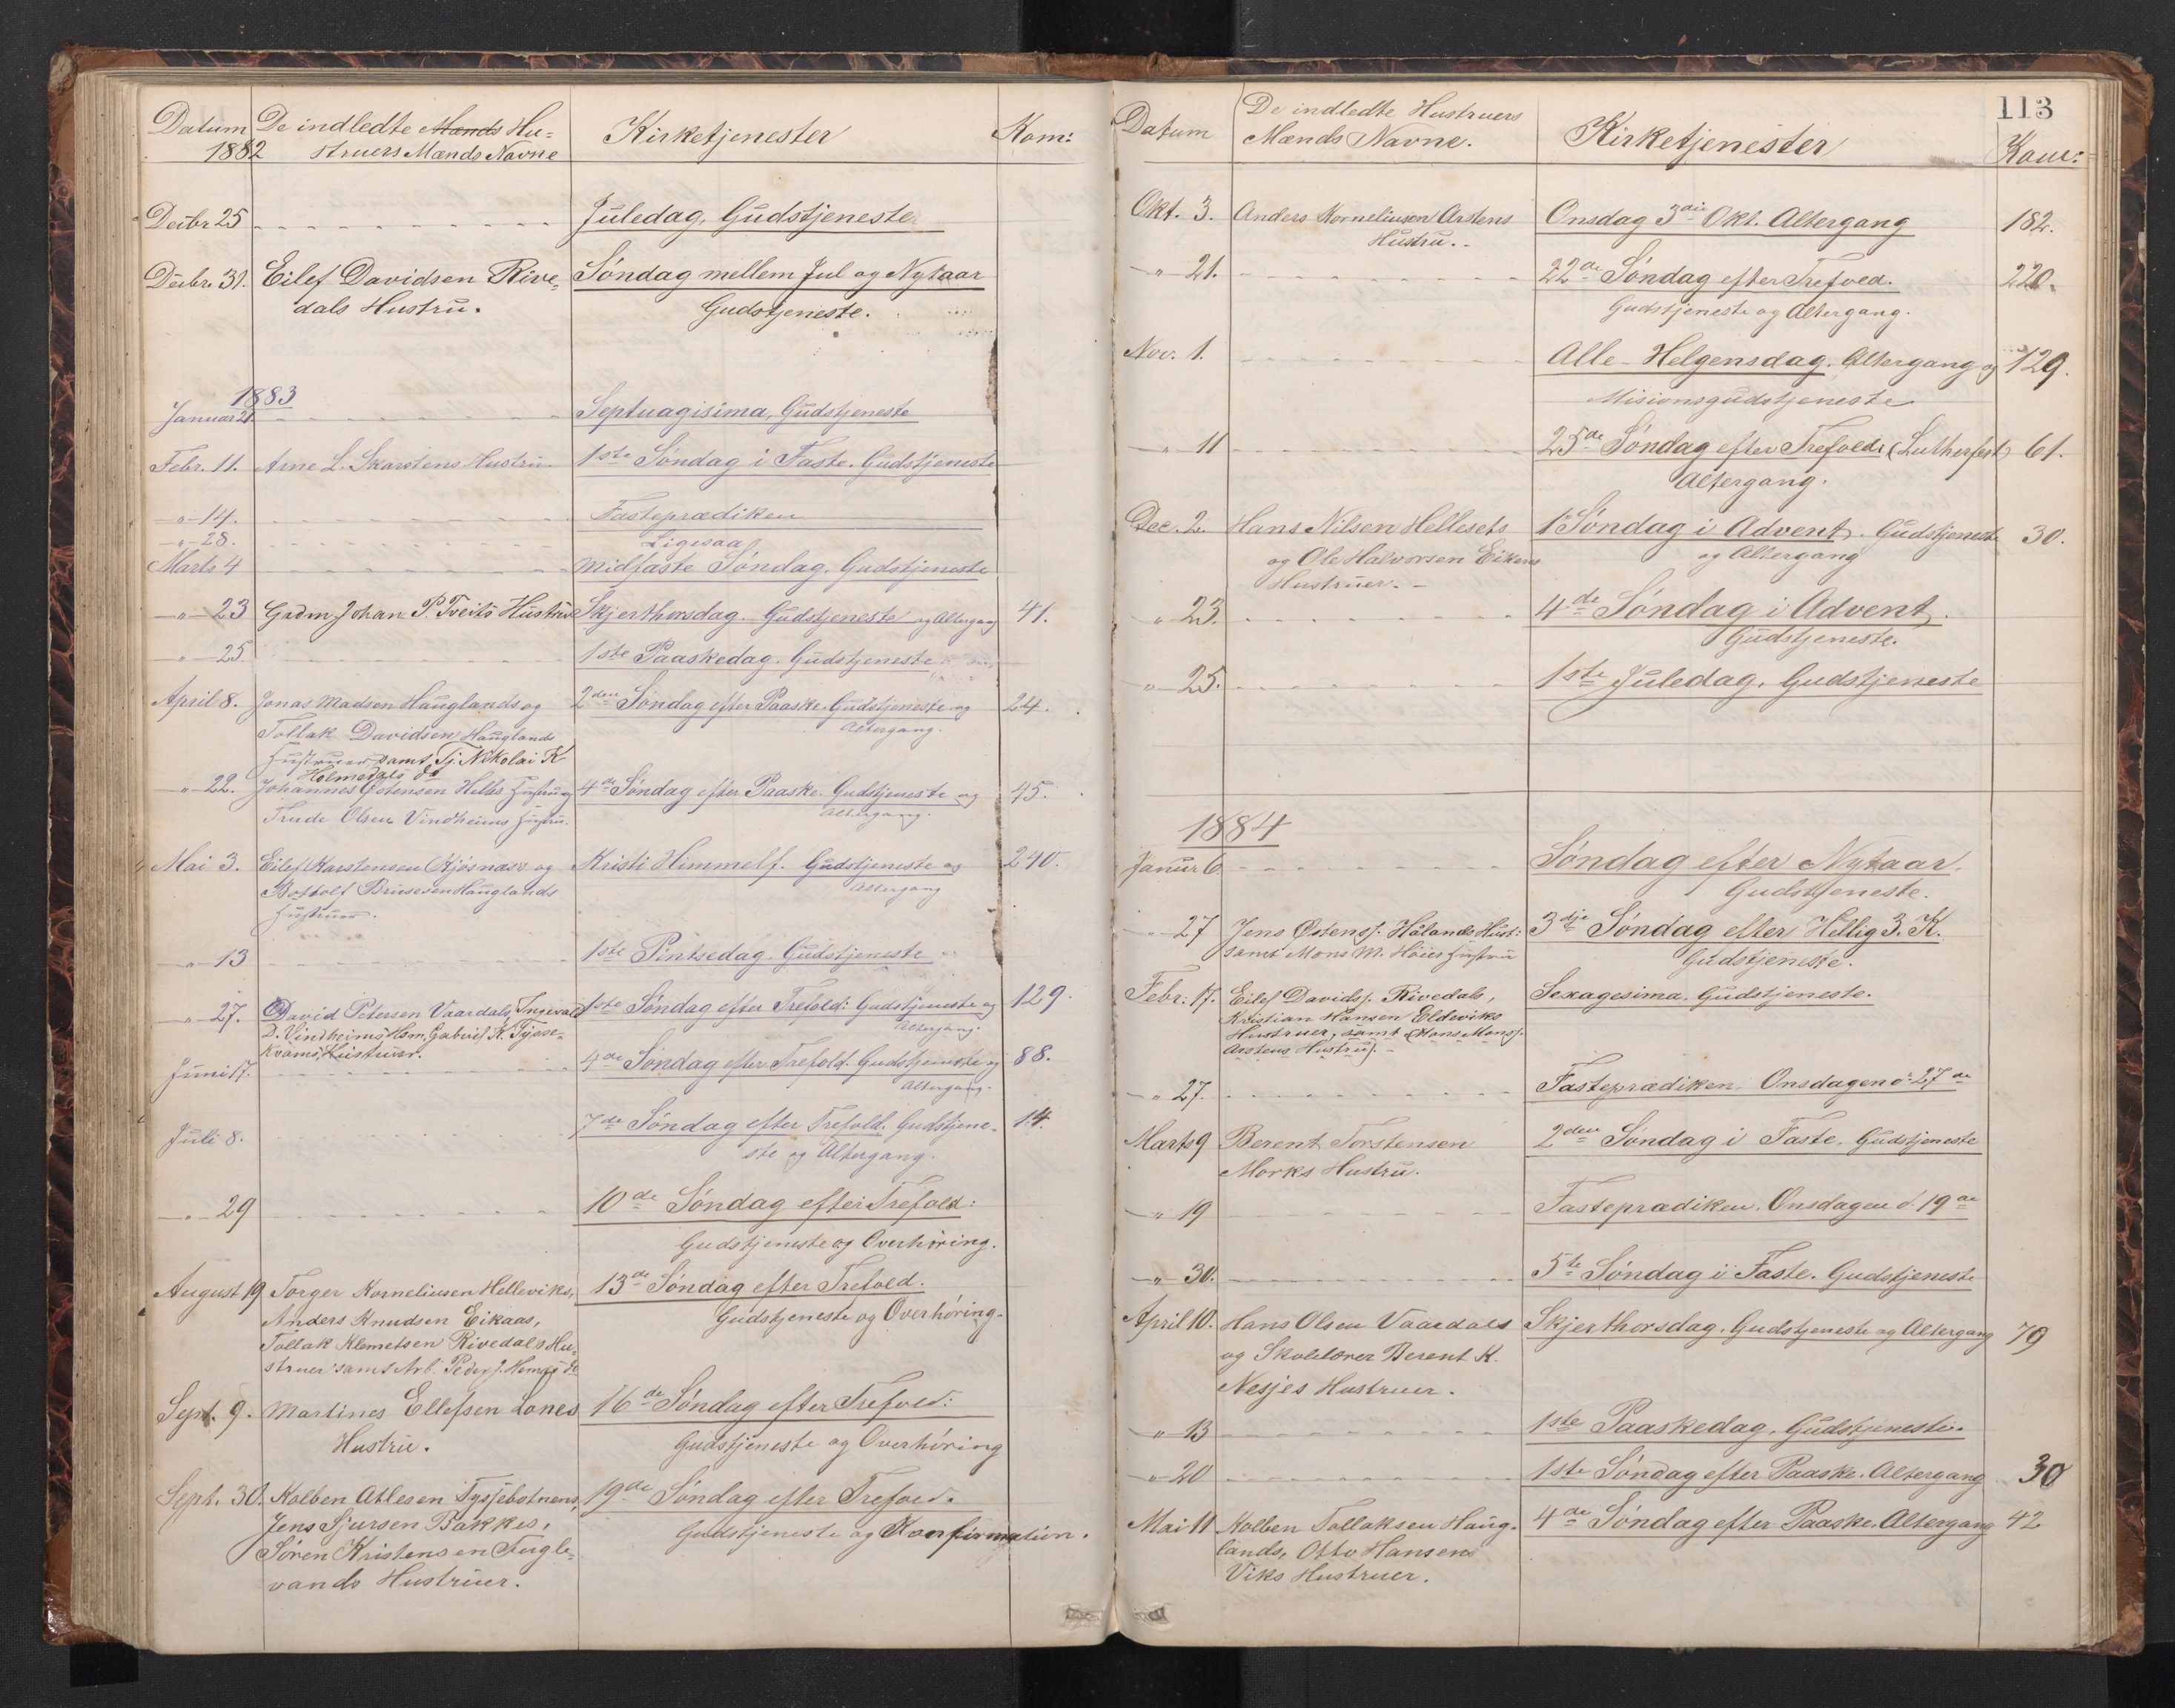 Datum De indledte Mænds Hu= Kirketjenester Kom:
1882 struers Mænds Navne
Decbr 25 Juledag, Gudstjeneste
Decbr. 31. Eilef Davidsen Rive= Söndag mellem Jul og Nytaar
dals Hustru. Gudstjeneste.
1883
Januar 21. Septuagisima, Gudstjeneste
Febr. 11. Arne L. Skarstens Hustru 1ste Söndag i Faste. Gudstjeneste
-"- 14. Fasteprædiken
-"- 28. Ligesaa
Marts 4 Midfaste Söndag. Gudstjeneste
-"- 23 Grdm. Johan P. Tveits Hustru Skjerthorsdag. Gudstjeneste og Altergang 41.
-"- 25 1ste Paaskedag. Gudstjeneste
April 8. Jonas Madsen Hauglands og 2den Söndag efter Paaske. Gudstjeneste og 24.
Tollak Davidsen Hauglands Altergang.
Hustruer samt Tj. Nikolai K.
Holmedals do
-"- 22. Johannes Östensen Helles Hustru og 4de Söndag efter Paaske. Gudstjeneste og 45.
Trude Olsen Vindheims Hustru. Altergang.
Mai 3. Eilef Karstensen Kjösnæs og Kristi Himmelf. Gudstjeneste og 240.
Botolf Brusesen Hauglands Altergang
Hustruer.
-"- 13 1ste Pintsedag. Gudstjeneste
-"- 27. David Petersen Vaardals, Ingevald 1ste Söndag efter Trefold: Gudstjeneste og 129.
D. Vindheims, Hsm. Gabriel K. Altergang.
Kvams, Hustruer.
Juni 17. 4de Söndag efter Trefold. Gudstjeneste og 88.
Altergang.
Juli 8. 7de Söndag efter Trefold. Gudstjene= 14.
ste og Altergang.
-"- 29 10de Söndag efter Trefold:
Gudstjeneste og Overhöring.
August 19 Torger Korneliusen Helleviks, 13de Söndag efter Trefold.
Anders Knudsen Eikaas, Gudstjeneste og Overhöring.
Tollak Klemetsen Rivedals Hu=
struer samt Arb. Peder J.
Sept. 9. Martines Ellefsen Lones 16de Söndag efter Trefold:
Hustru. Gudstjeneste og Overhöring
Sept. 30. Kolben Atlesen Tysjebotnens, 19de Söndag efter Trefold.
Jens Sjursen Bakkes, Gudstjeneste og Konfirmation.
Sören Kristensen Fugle=
vands Hustruer.
113
Datum De indledte Hustruers Kirketjenester Kom:
Mænds Navne.
Okt. 3. Anders Korneliusen Arstens Onsdag 3die Okt. Altergang 182.
Hustru.
-"- 21. 22de Söndag efter Trefold. 220.
Gudstjeneste og Altergang.
Nov. 1. Alle-Helgensdag. Altergang og 129.
Misionsgudstjeneste
-"- 11 25de Söndag efter Trefold: (Lutherfest) 61.
Altergang.
Dec. 2. Hans Nilsen Hellesets 1ste Söndag i Advent. Gudstjeneste 30.
og Ole Halvorsen Eikens og Altergang
Hustruer.
-"- 23. 4de Söndag i Advent.
Gudstjeneste.
-"- 25. 1ste Juledag, Gudstjeneste
1884
Januar 6. Söndag efter Nytaar.
Gudstjeneste.
-"- 27 Jens Östens. Hålands Hust: 3dje Söndag efter Hellig 3. K.
samt Mons M. Höies Hustru Gudstjeneste.
Febr. 17. Eilef Davids. Rivedals, Sexagesima. Gudstjeneste.
Kristian Hansen Eldeviks
Hustruer, samt (Hans Mons.
Arstens Hustru).
-"- 27. Fasteprædiken. Onsdagen d. 27de
Marts 9 Berent Torstensen 2den Söndag i Faste. Gudstjeneste
Morks Hustru.
-"- 19 Fasteprædiken. Onsdagen d. 19de
-"- 30. 5te Söndag i Faste. Gudstjeneste
April 10. Hans Olsen Vaardals Skjerthorsdag. Gudstjeneste og Altergang 79
og Skolelærer Berent K.
Nesjes Hustruer.
-"- 13 1ste Paaskedag, Gudstjeneste.
-"- 20 1ste Söndag efter Paaske. Altergang 30
Mai 11 Kolben Tollaksen Haug= 4de Söndag efter Paaske. Altergang 42
lands, Otto Hansens
Viks Hustruer.